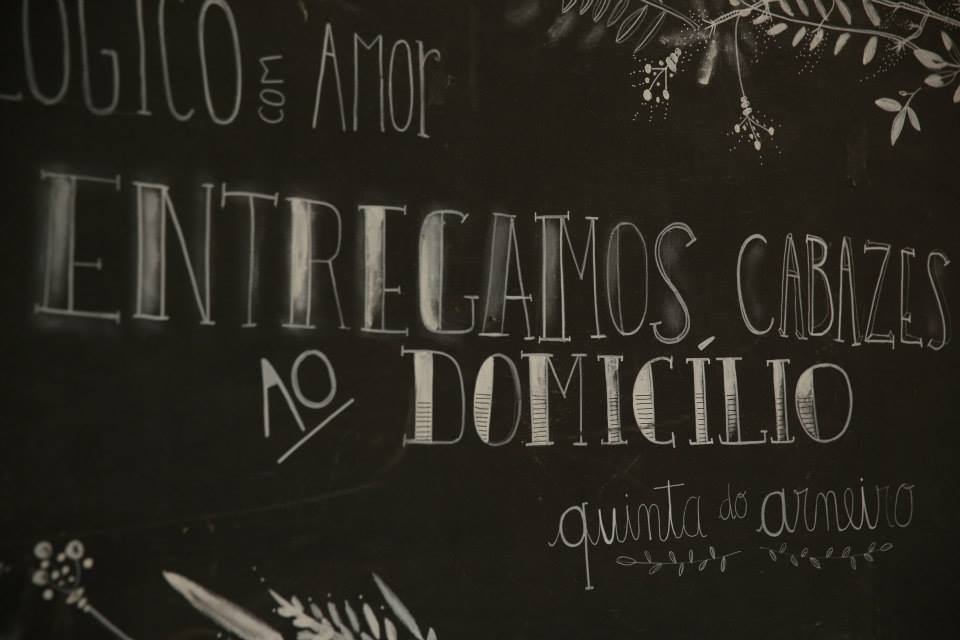 LÓGICO com AMOr
ENTREGAMOS CABAZES
AO DOMICÍLIO
quinta do arneiro